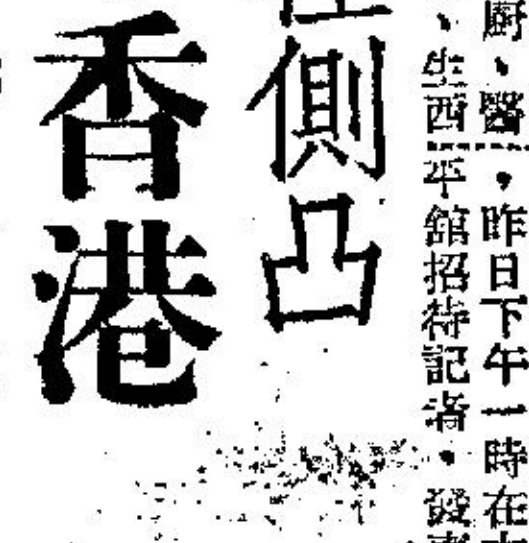 廚、醫，昨日下午一時在
西平館招待記者，發
側凸
香港